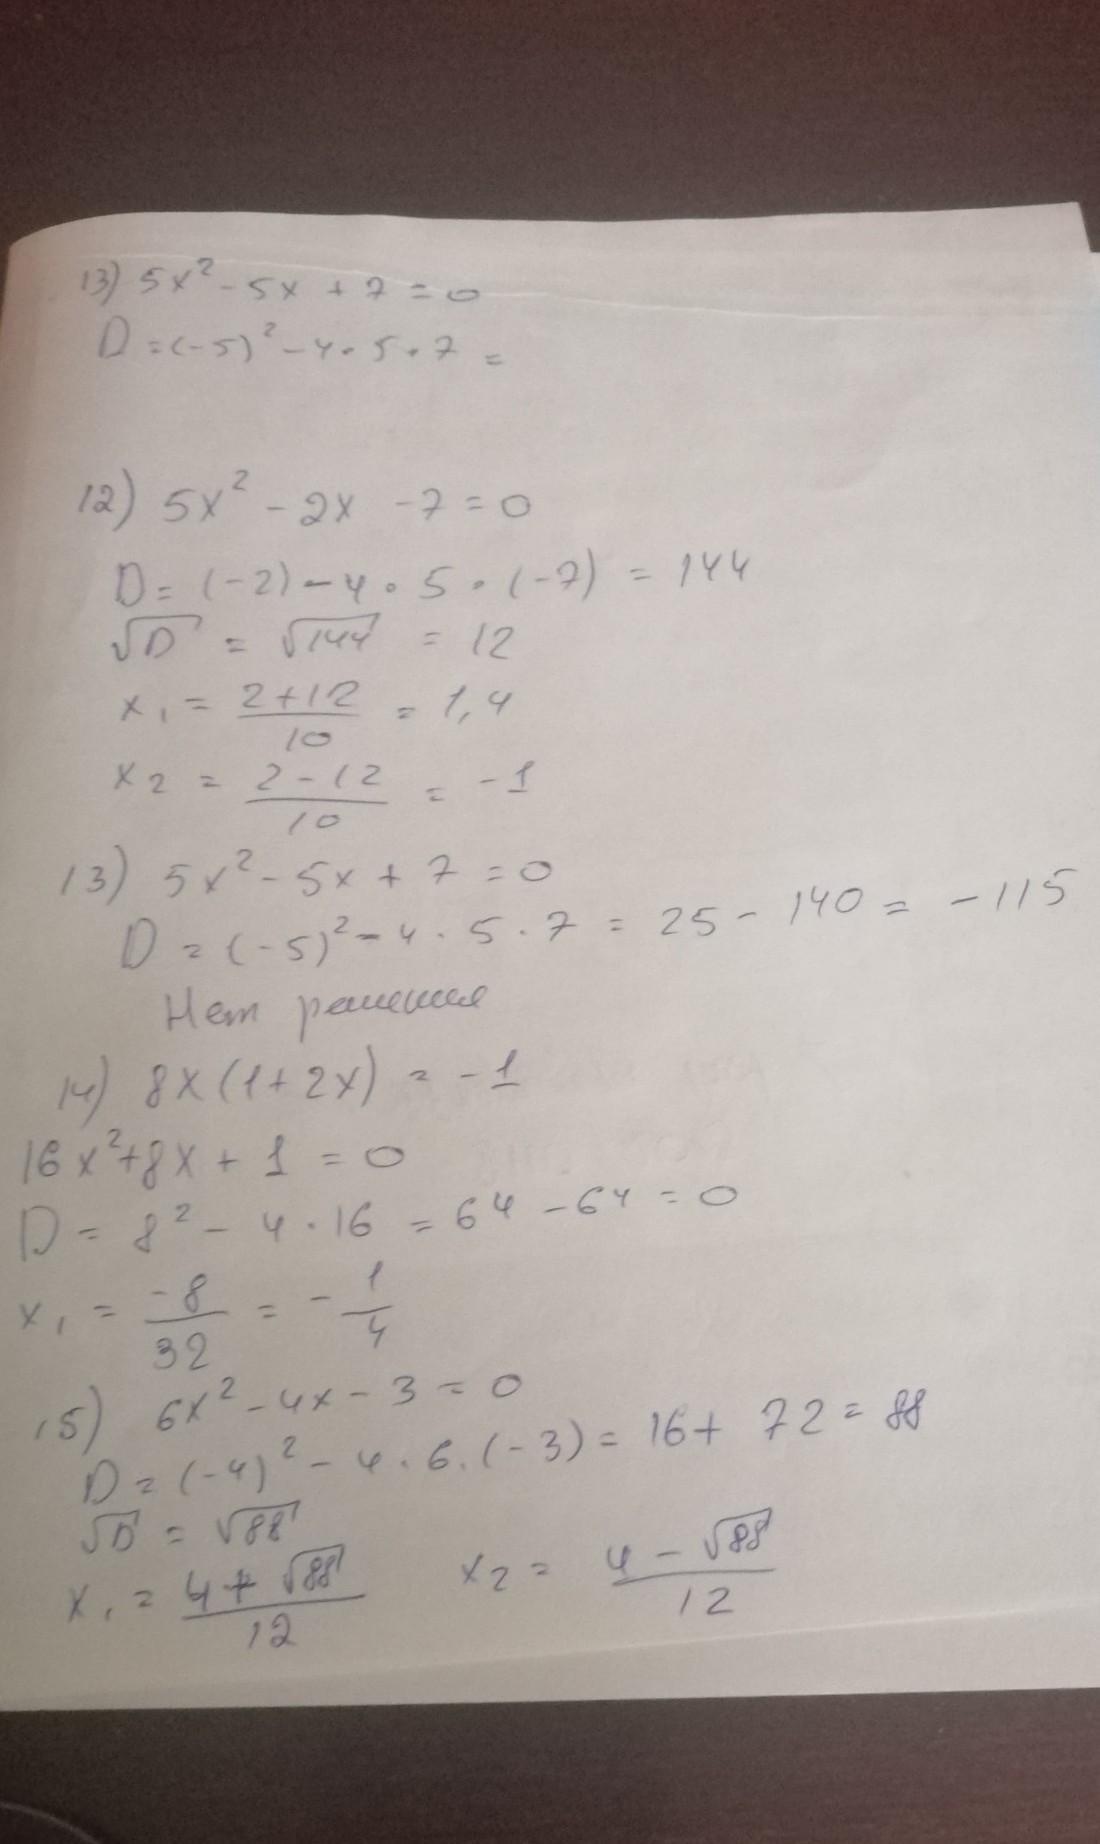 13) 5x² - 5x + 7 = 0
D = (-5)² - 4 · 5 · 7 =
12) 5x² - 2x - 7 = 0
D = (-2) - 4 · 5 · (-7) = 144
√D = √144 = 12
x₁ = (2+12)/10 = 1,4
x₂ = (2-12)/10 = -1
13) 5x² - 5x + 7 = 0
D = (-5)² - 4 · 5 · 7 = 25 - 140 = -115
Нет решения
14) 8x(1+2x) = -1
16x² + 8x + 1 = 0
D = 8² - 4 · 16 = 64 - 64 = 0
x₁ = -8/32 = -1/4
15) 6x² - 4x - 3 = 0
D = (-4)² - 4 · 6 · (-3) = 16 + 72 = 88
√D = √88
x₁ = (4+√88)/12 x₂ = (4-√88)/12